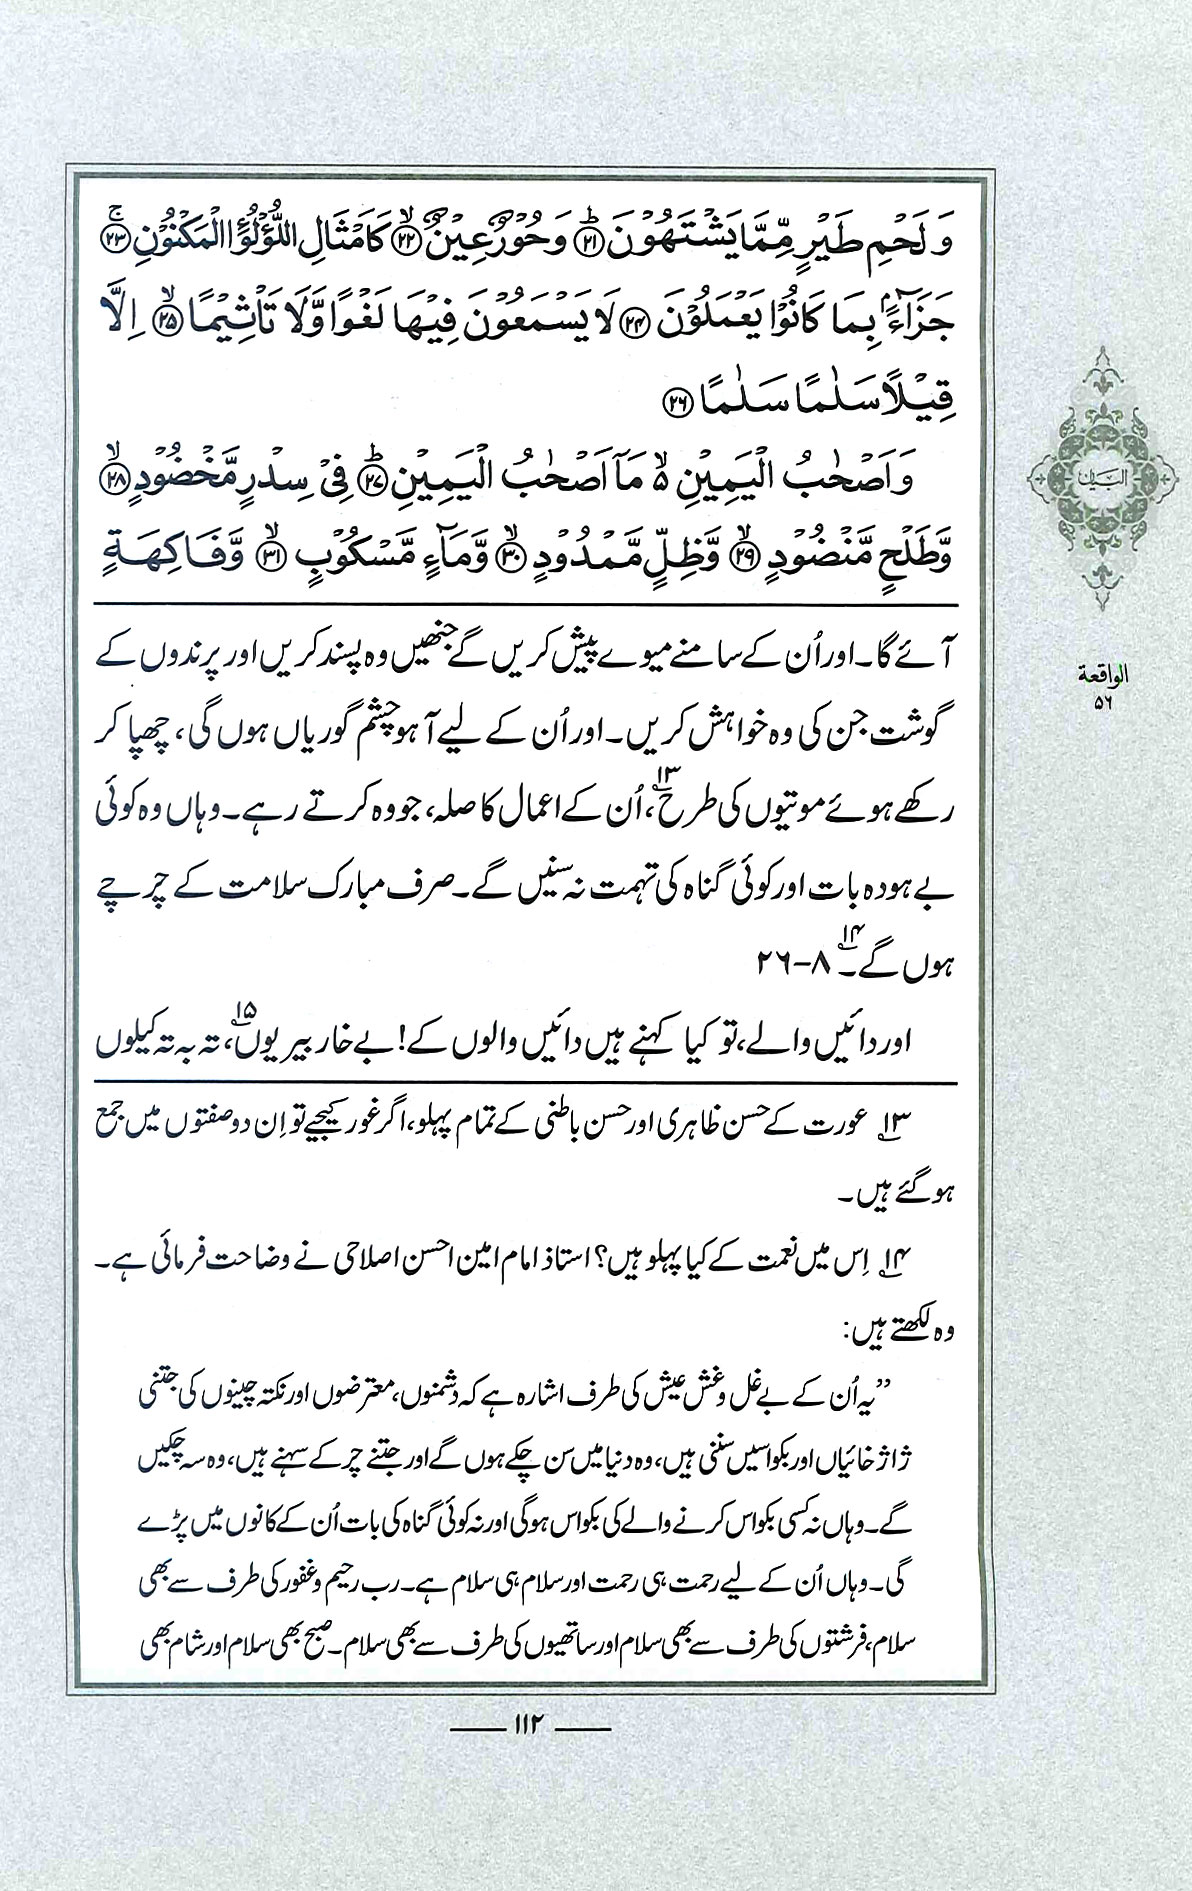 وَ لَحۡمِ طَیۡرٍ مِّمَّا یَشۡتَہُوۡنَ ﴿ؕ۲۱﴾ وَ حُوۡرٌ عِیۡنٌ ﴿ۙ۲۲﴾ کَاَمۡثَالِ اللُّؤۡلُوَٴ الۡمَکۡنُوۡنِ ﴿ۚ۲۳﴾
جَزَآءًۢ بِمَا کَانُوۡا یَعۡمَلُوۡنَ ﴿۲۴﴾ لَا یَسۡمَعُوۡنَ فِیۡہَا لَغۡوًا وَّلَا تَاۡثِیۡمًا ﴿ۙ۲۵﴾ اِلَّا
قِیۡلًا سَلٰمًا سَلٰمًا ﴿۲۶﴾
وَ اَصۡحٰبُ الۡیَمِیۡنِ ۬ۙ مَاۤ اَصۡحٰبُ الۡیَمِیۡنِ ﴿ؕ۲۷﴾ فِیۡ سِدۡرٍ مَّخۡضُوۡدٍ ﴿ۙ۲۸﴾
وَّ طَلۡحٍ مَّنۡضُوۡدٍ ﴿ۙ۲۹﴾ وَّ ظِلٍّ مَّمۡدُوۡدٍ ﴿ۙ۳۰﴾ وَّ مَآءٍ مَّسۡکُوۡبٍ ﴿ۙ۳۱﴾ وَّ فَاکِہَۃٍ
آئے گا۔ اور اُن کے سامنے میوے پیش کریں گے جنھیں وہ پسند کریں اور پرندوں کے
گوشت جن کی وہ خواہش کریں۔ اور اُن کے لیے آہو چشم گوریاں ہوں گی، چھپا کر
رکھے ہوئے موتیوں کی طرح۱۳، اُن کے اعمال کا صلہ، جو وہ کرتے رہے۔ وہاں وہ کوئی
بے ہودہ بات اور کوئی گناہ کی تہمت نہ سنیں گے۔ صرف مبارک سلامت کے چرچے
ہوں گے۔۱۴ ۸-۲۶
اور دائیں والے، تو کیا کہنے ہیں دائیں والوں کے! بے خار بیریوں۱۵، تہ بہ تہ کیلوں
۱۳ عورت کے حسن ظاہری اور حسن باطنی کے تمام پہلو، اگر غور کیجیے تو اِن دو صفتوں میں جمع
ہو گئے ہیں۔
۱۴ اِس میں نعمت کے کیا پہلو ہیں؟ استاذ امام امین احسن اصلاحی نے وضاحت فرمائی ہے۔
وہ لکھتے ہیں:
”یہ اُن کے بے غل و غش عیش کی طرف اشارہ ہے کہ دشمنوں، معترضوں اور نکتہ چینوں کی جتنی
ژاژخائیاں اور بکواسیں سننی ہیں، وہ دنیا میں سن چکے ہوں گے اور جتنے چرکے سہنے ہیں، وہ سہ چکیں
گے۔ وہاں نہ کسی بکواس کرنے والے کی بکواس ہو گی اور نہ کوئی گناہ کی بات اُن کے کانوں میں پڑے
گی۔ وہاں اُن کے لیے رحمت ہی رحمت اور سلام ہی سلام ہے۔ رب رحیم و غفور کی طرف سے بھی
سلام، فرشتوں کی طرف سے بھی سلام اور ساتھیوں کی طرف سے بھی سلام۔ صبح بھی سلام اور شام بھی
البیان
الواقعة
۵۶
۱۱۲